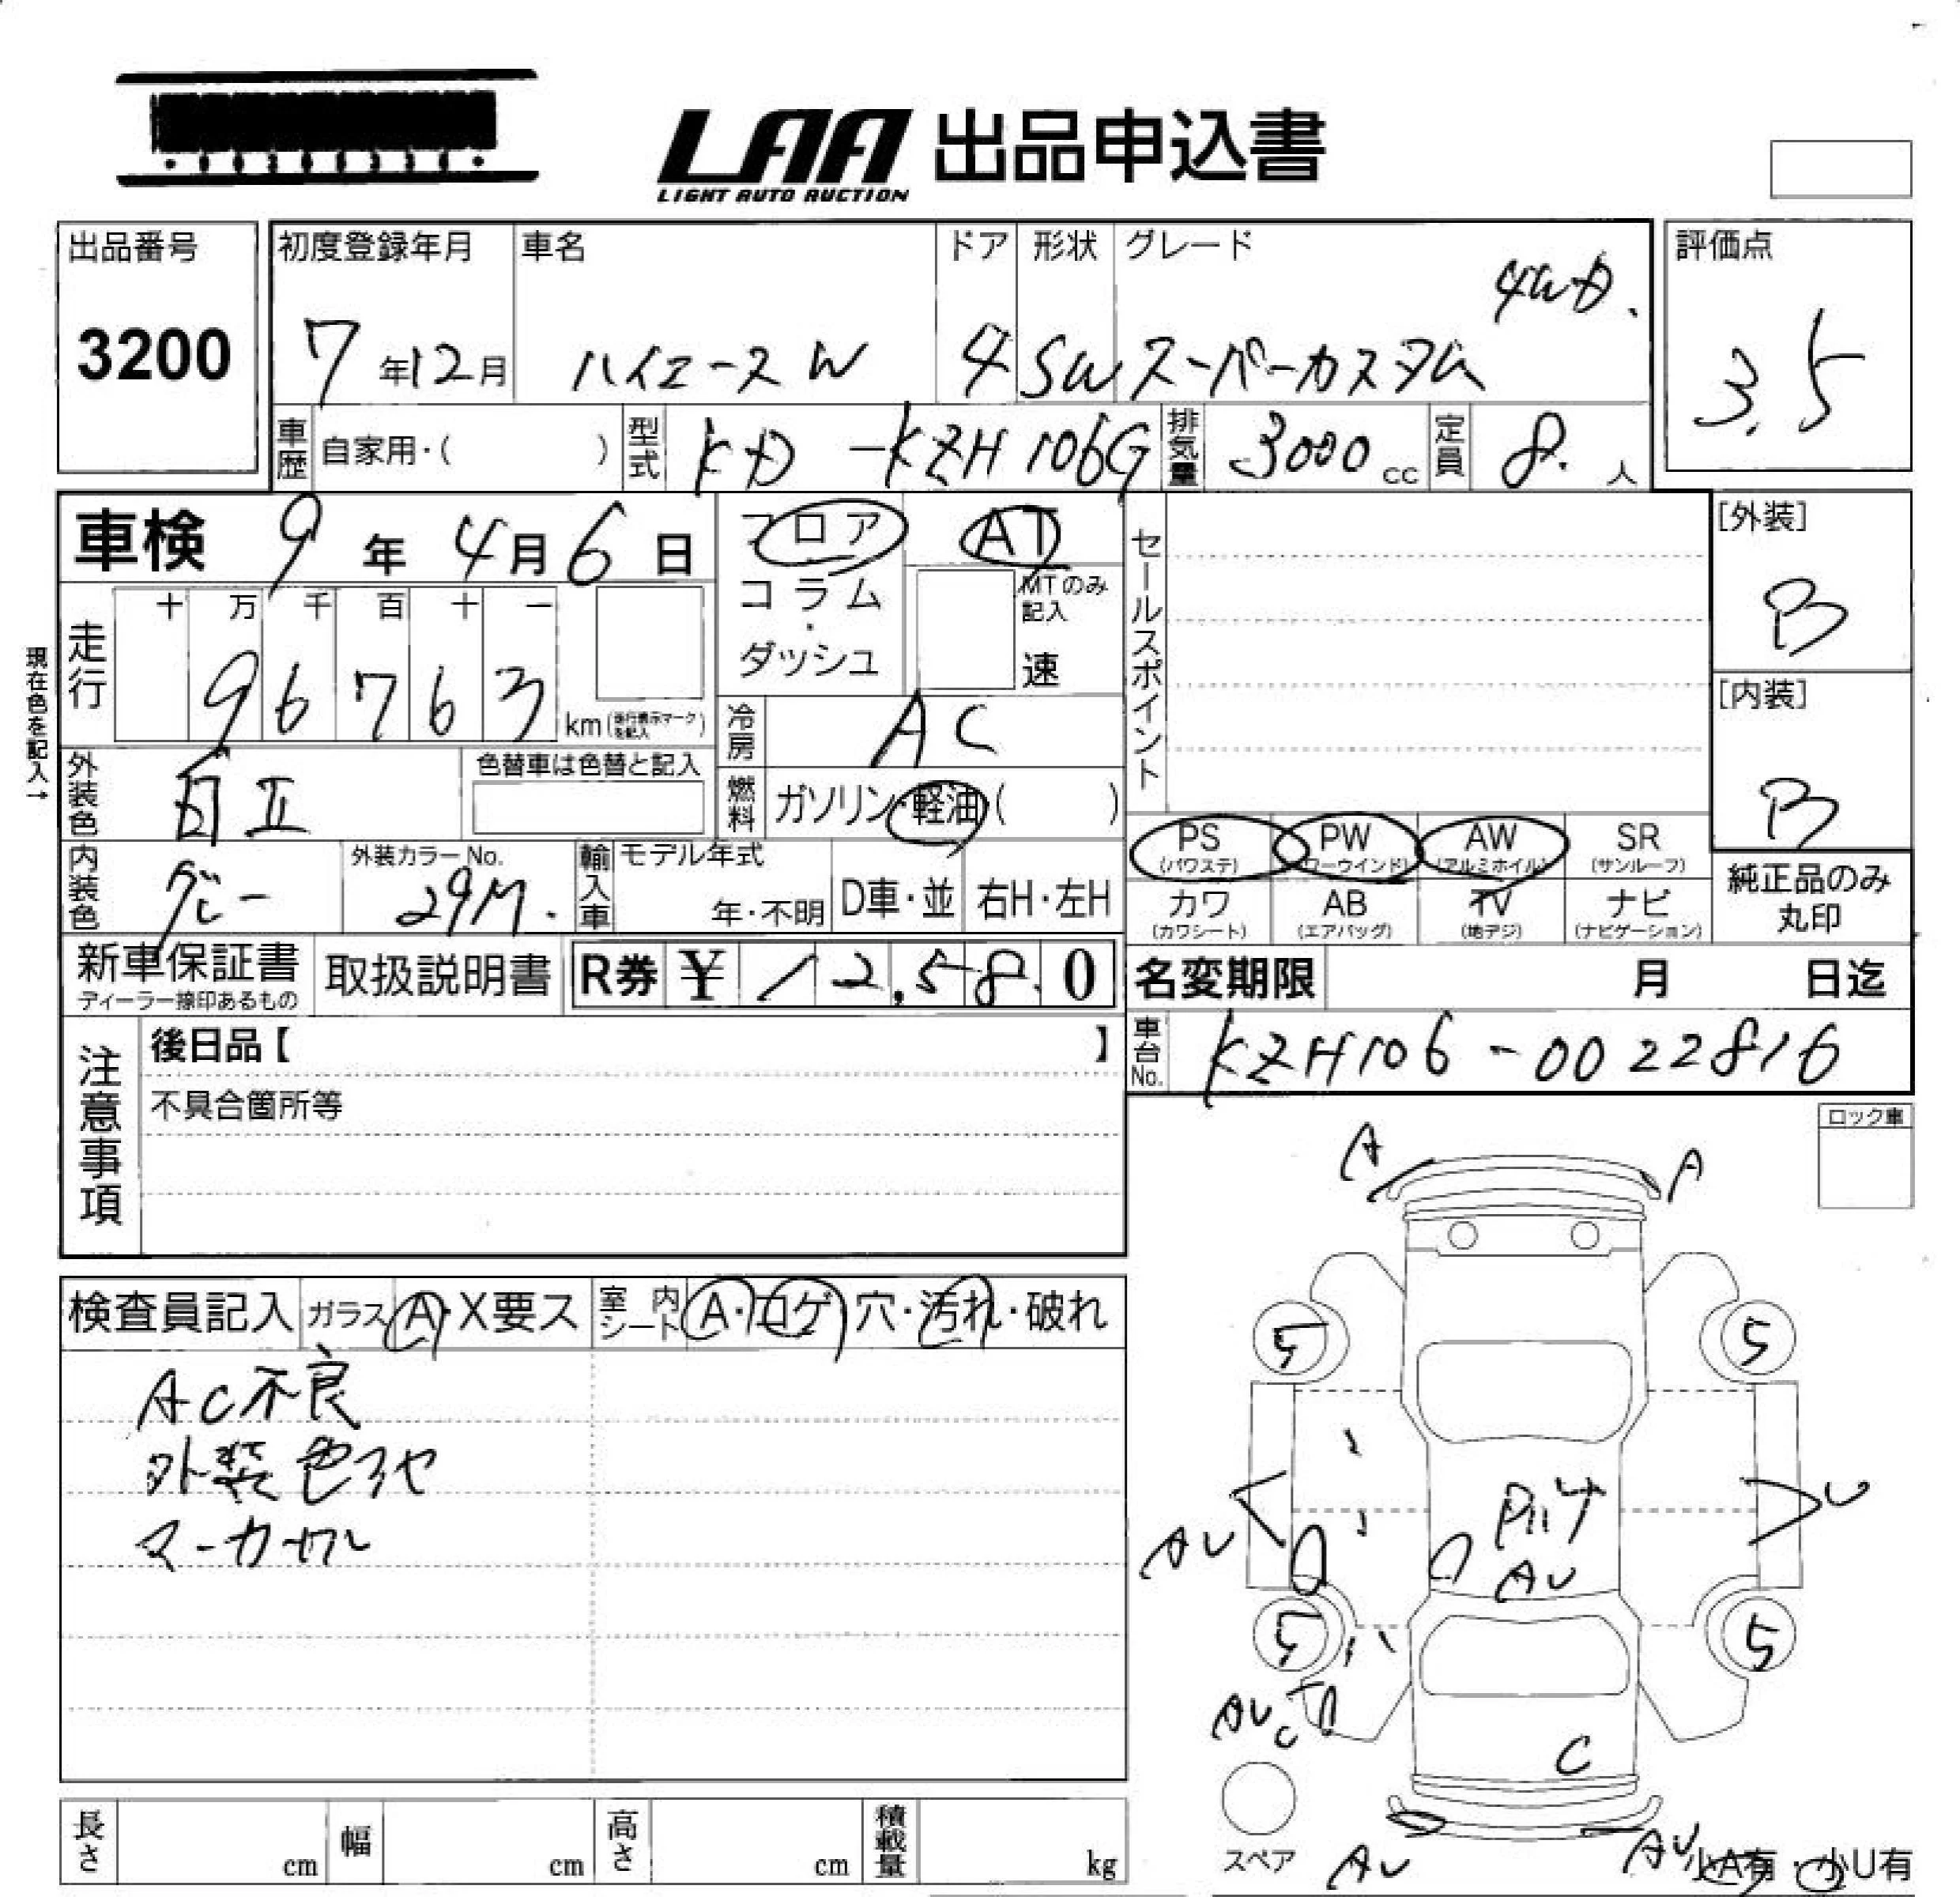 LAA 出品申込書
LIGHT AUTO AUCTION
出品番号
3200
初度登録年月
7年12月
車名
ハイエースW
ドア
4
形状
SW
グレード
4WD.
スーパーカスタム
評価点
3.5
車歴 自家用・( )
型式 KD-KZH106G
排気量 3000cc
定員 8.人
車検 9年4月6日
フロア
コラム・ダッシュ
AT
MTのみ記入
速
セールスポイント
[外装]
B
[内装]
B
現在色を記入→
走行
十 万 千 百 十 一
96763 km(走行表示マークを記入)
冷房 AC
外装色 白II
色替車は色替と記入
燃料 ガソリン・軽油・( )
内装色 グレー
外装カラーNo. 29M.
輸入車 モデル年式
年・不明
D車・並
右H・左H
PS (パワステ)
PW (パワーウインド)
AW (アルミホイル)
SR (サンルーフ)
カワ (カワシート)
AB (エアバッグ)
TV (地デジ)
ナビ (ナビゲーション)
純正品のみ丸印
新車保証書
ディーラー捺印あるもの
取扱説明書
R券 ¥12,580
名変期限 月 日迄
車台No. KZH106-0022816
注意事項
後日品【 】
不具合箇所等
ロック車
検査員記入
ガラス A・X要ス
室内シート A・コゲ・穴・汚れ・破れ
AC不良
外装色アセ
マーカーワレ
A
A
5
5
AU
U
AU
5
5
AU
C
C
スペア
AU
AU
小A有・小U有
長さ cm
幅 cm
高さ cm
積載量 kg